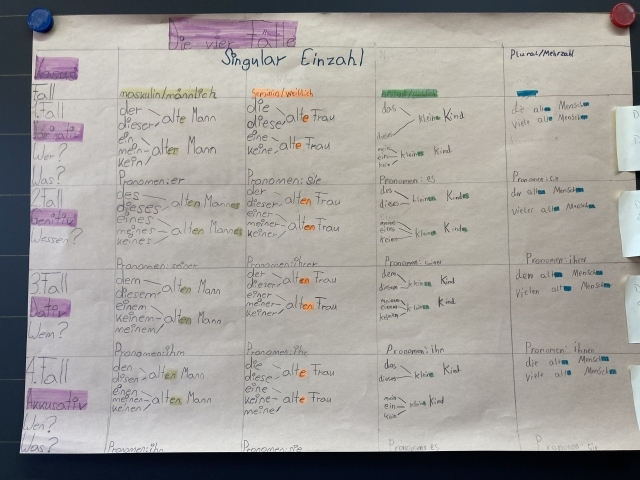 Die vier Fälle
Singular Einzahl
Plural/Mehrzahl
Kasus
Fall
maskulin/männlich
feminin/weiblich
1.Fall
der
dieser
alte Mann
ein
mein
kein
alten Mann
Pronomen:er
die
diese
alte Frau
eine
keine
alte Frau
Pronomen:sie
das
dieses
kleine Kind
mein
ein
kein
kleines Kind
Pronomen:es
die alten Menschen
viele alte Menschen
Pronomen:sie
Wer?
Was?
2.Fall
Genitiv
Wessen?
des
dieses
alten Mannes
eines
meines
keines
alten Mannes
Pronomen:seiner
der
dieser
alten Frau
einer
meiner
keiner
alten Frau
Pronomen:ihrer
des
dieses
kleinen Kindes
kleinen Kindes
der alten Menschen
vieler alten Menschen
Pronomen:ihrer
3.Fall
Dativ
Wem?
dem
diesem
alten Mann
einem
keinem
meinem
alten Mann
Pronomen:ihm
der
dieser
alten Frau
einer
meiner
keiner
alten Frau
Pronomen:ihr
dem
diesem
kleinen Kind
kleinen Kind
Pronomen:ihm
den alten Menschen
vielen alten Menschen
Pronomen:ihnen
4.Fall
Akkusativ
Wen?
Was?
den
diesen
alten Mann
einen
meinen
keinen
alten Mann
Pronomen:ihn
die
diese
alte Frau
eine
keine
meine
alte Frau
Pronomen:sie
das
dieses
kleine Kind
mein
ein
kein
kleines Kind
Pronomen:es
die alten Menschen
viele alte Menschen
Pronomen:sie